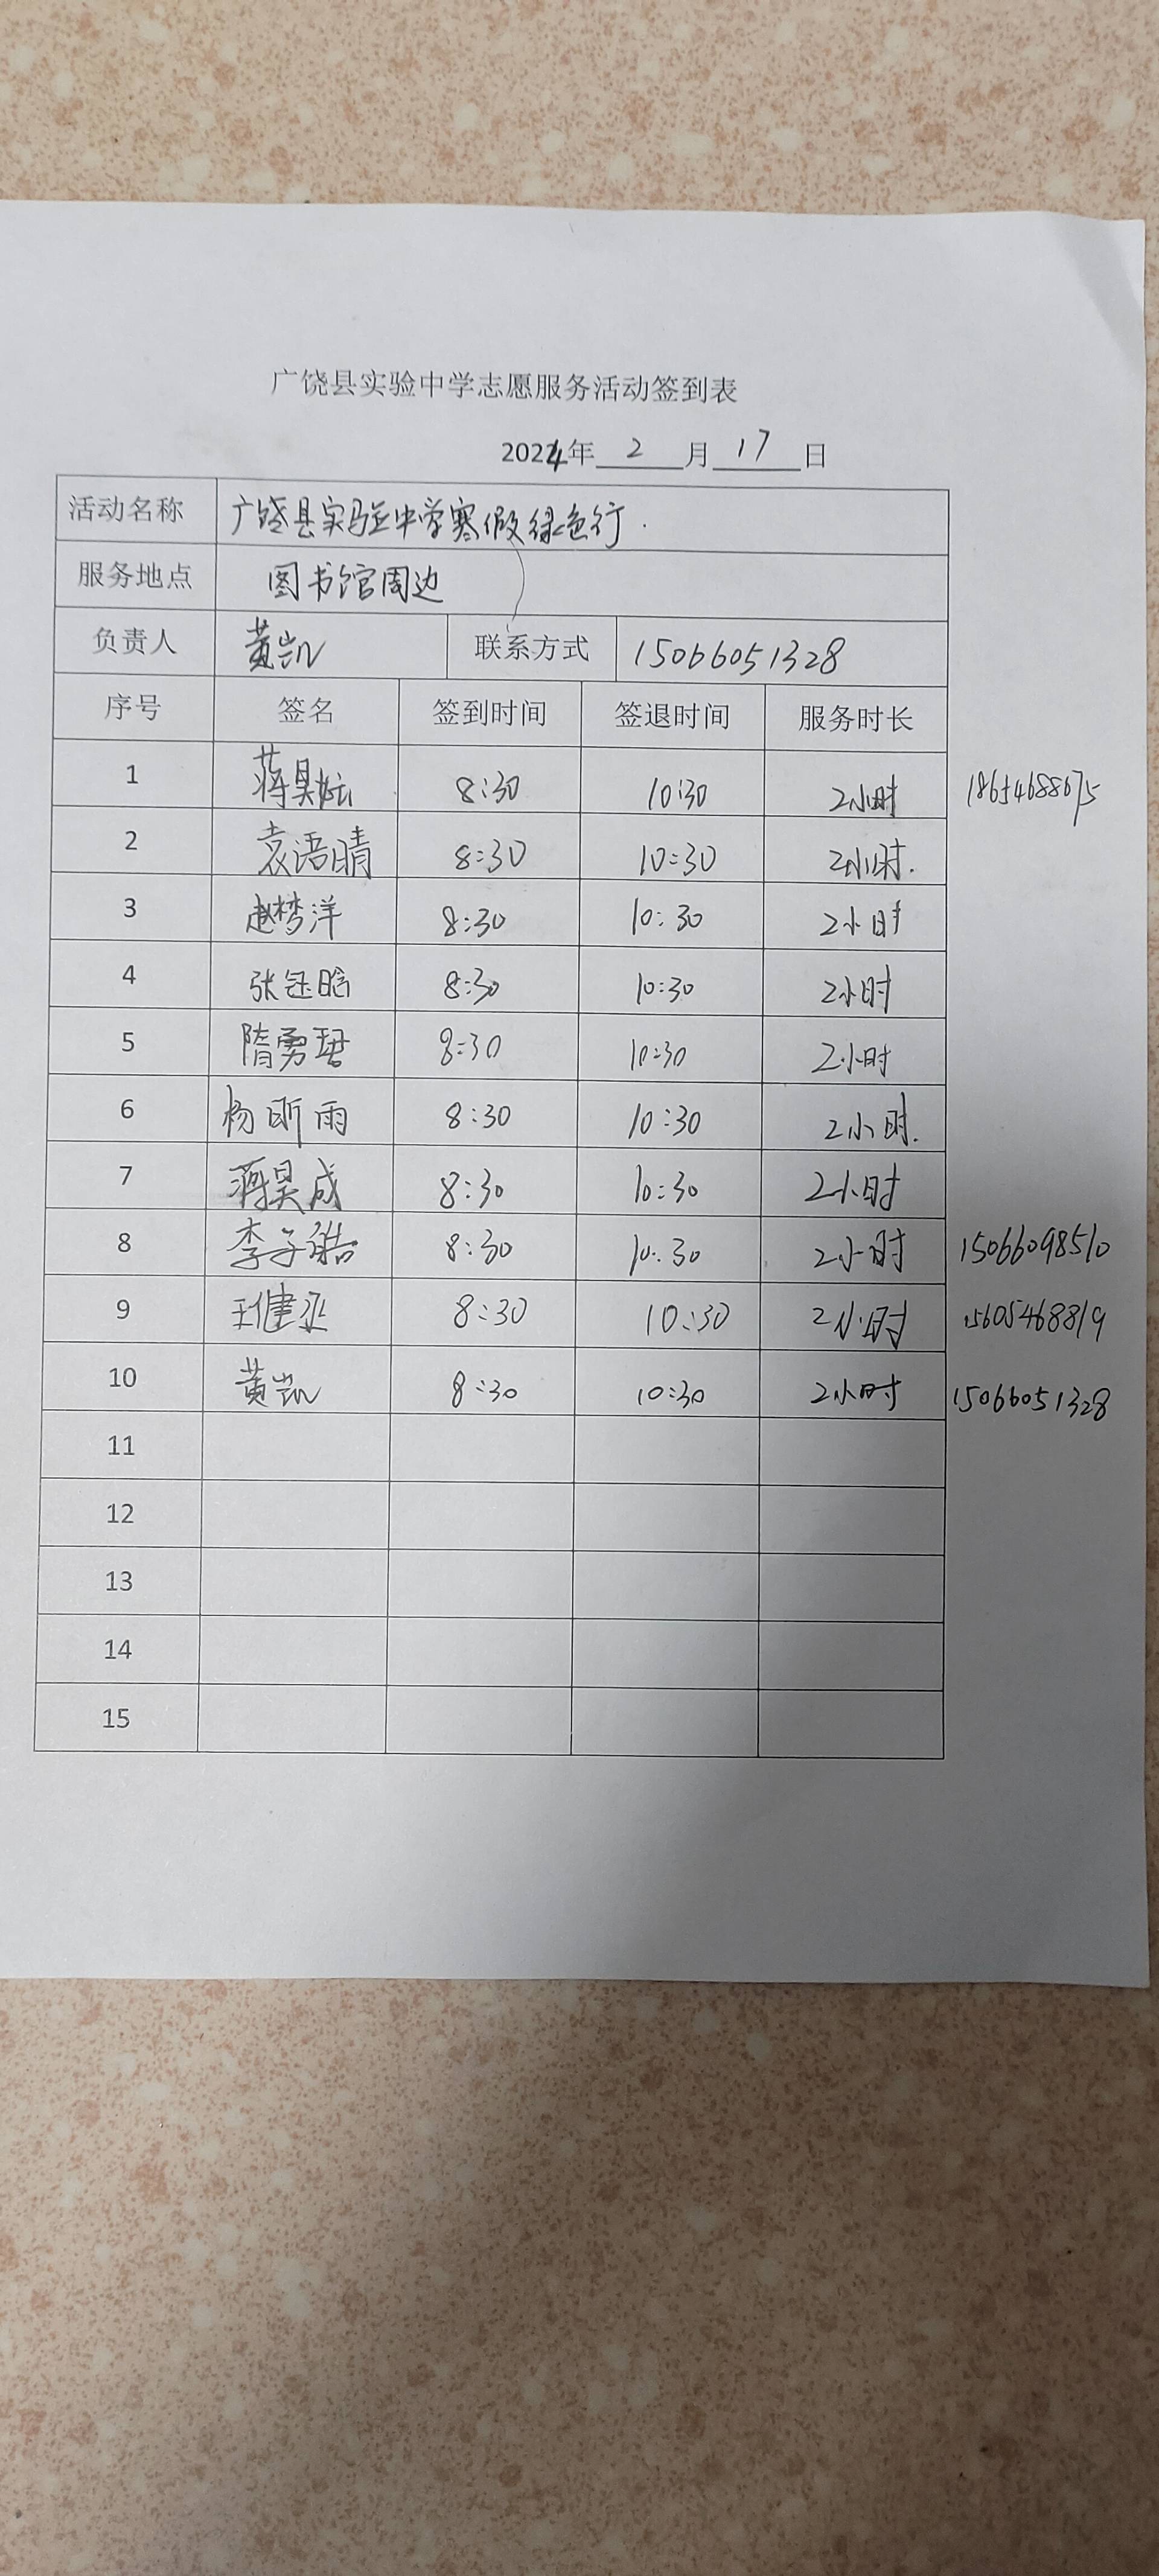 广饶县实验中学志愿服务活动签到表
2024年 2 月 17 日
活动名称 广饶县实验中学寒假绿色行.
服务地点 图书馆周边
负责人 黄凯 联系方式 15066051328
序号 签名 签到时间 签退时间 服务时长
1 蒋昊妘 8:30 10:30 2小时 18654688675
2 袁语晴 8:30 10:30 2小时.
3 赵梦洋 8:30 10:30 2小时
4 张钰晗 8:30 10:30 2小时
5 隋勇珺 8:30 10:30 2小时
6 杨昕雨 8:30 10:30 2小时.
7 蒋昊成 8:30 10:30 2小时
8 李子皓 8:30 10:30 2小时 15066098510
9 王健丞 8:30 10:30 2小时 15605468819
10 黄凯 8:30 10:30 2小时 15066051328
11
12
13
14
15